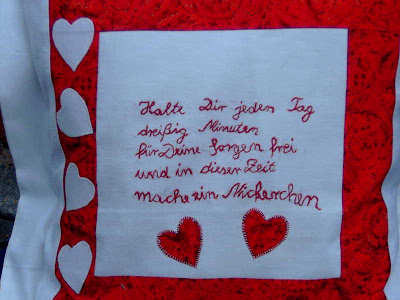 Halte Dir jeden Tag
dreißig Minuten
für Deine Sorgen frei
und in dieser Zeit
mache ein Nickerchen